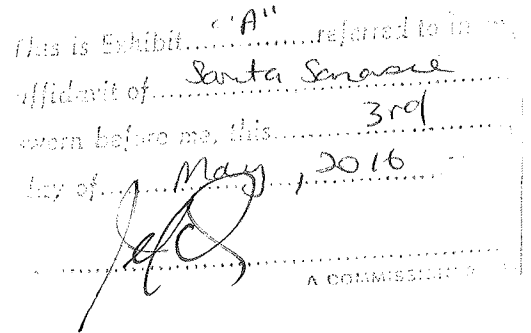 This is Exhibit....."A"..............referred to in
affidavit of.....Santa
sworn before me, this..........3rd..........
day of..........May, 2016
A COMMISSIONER